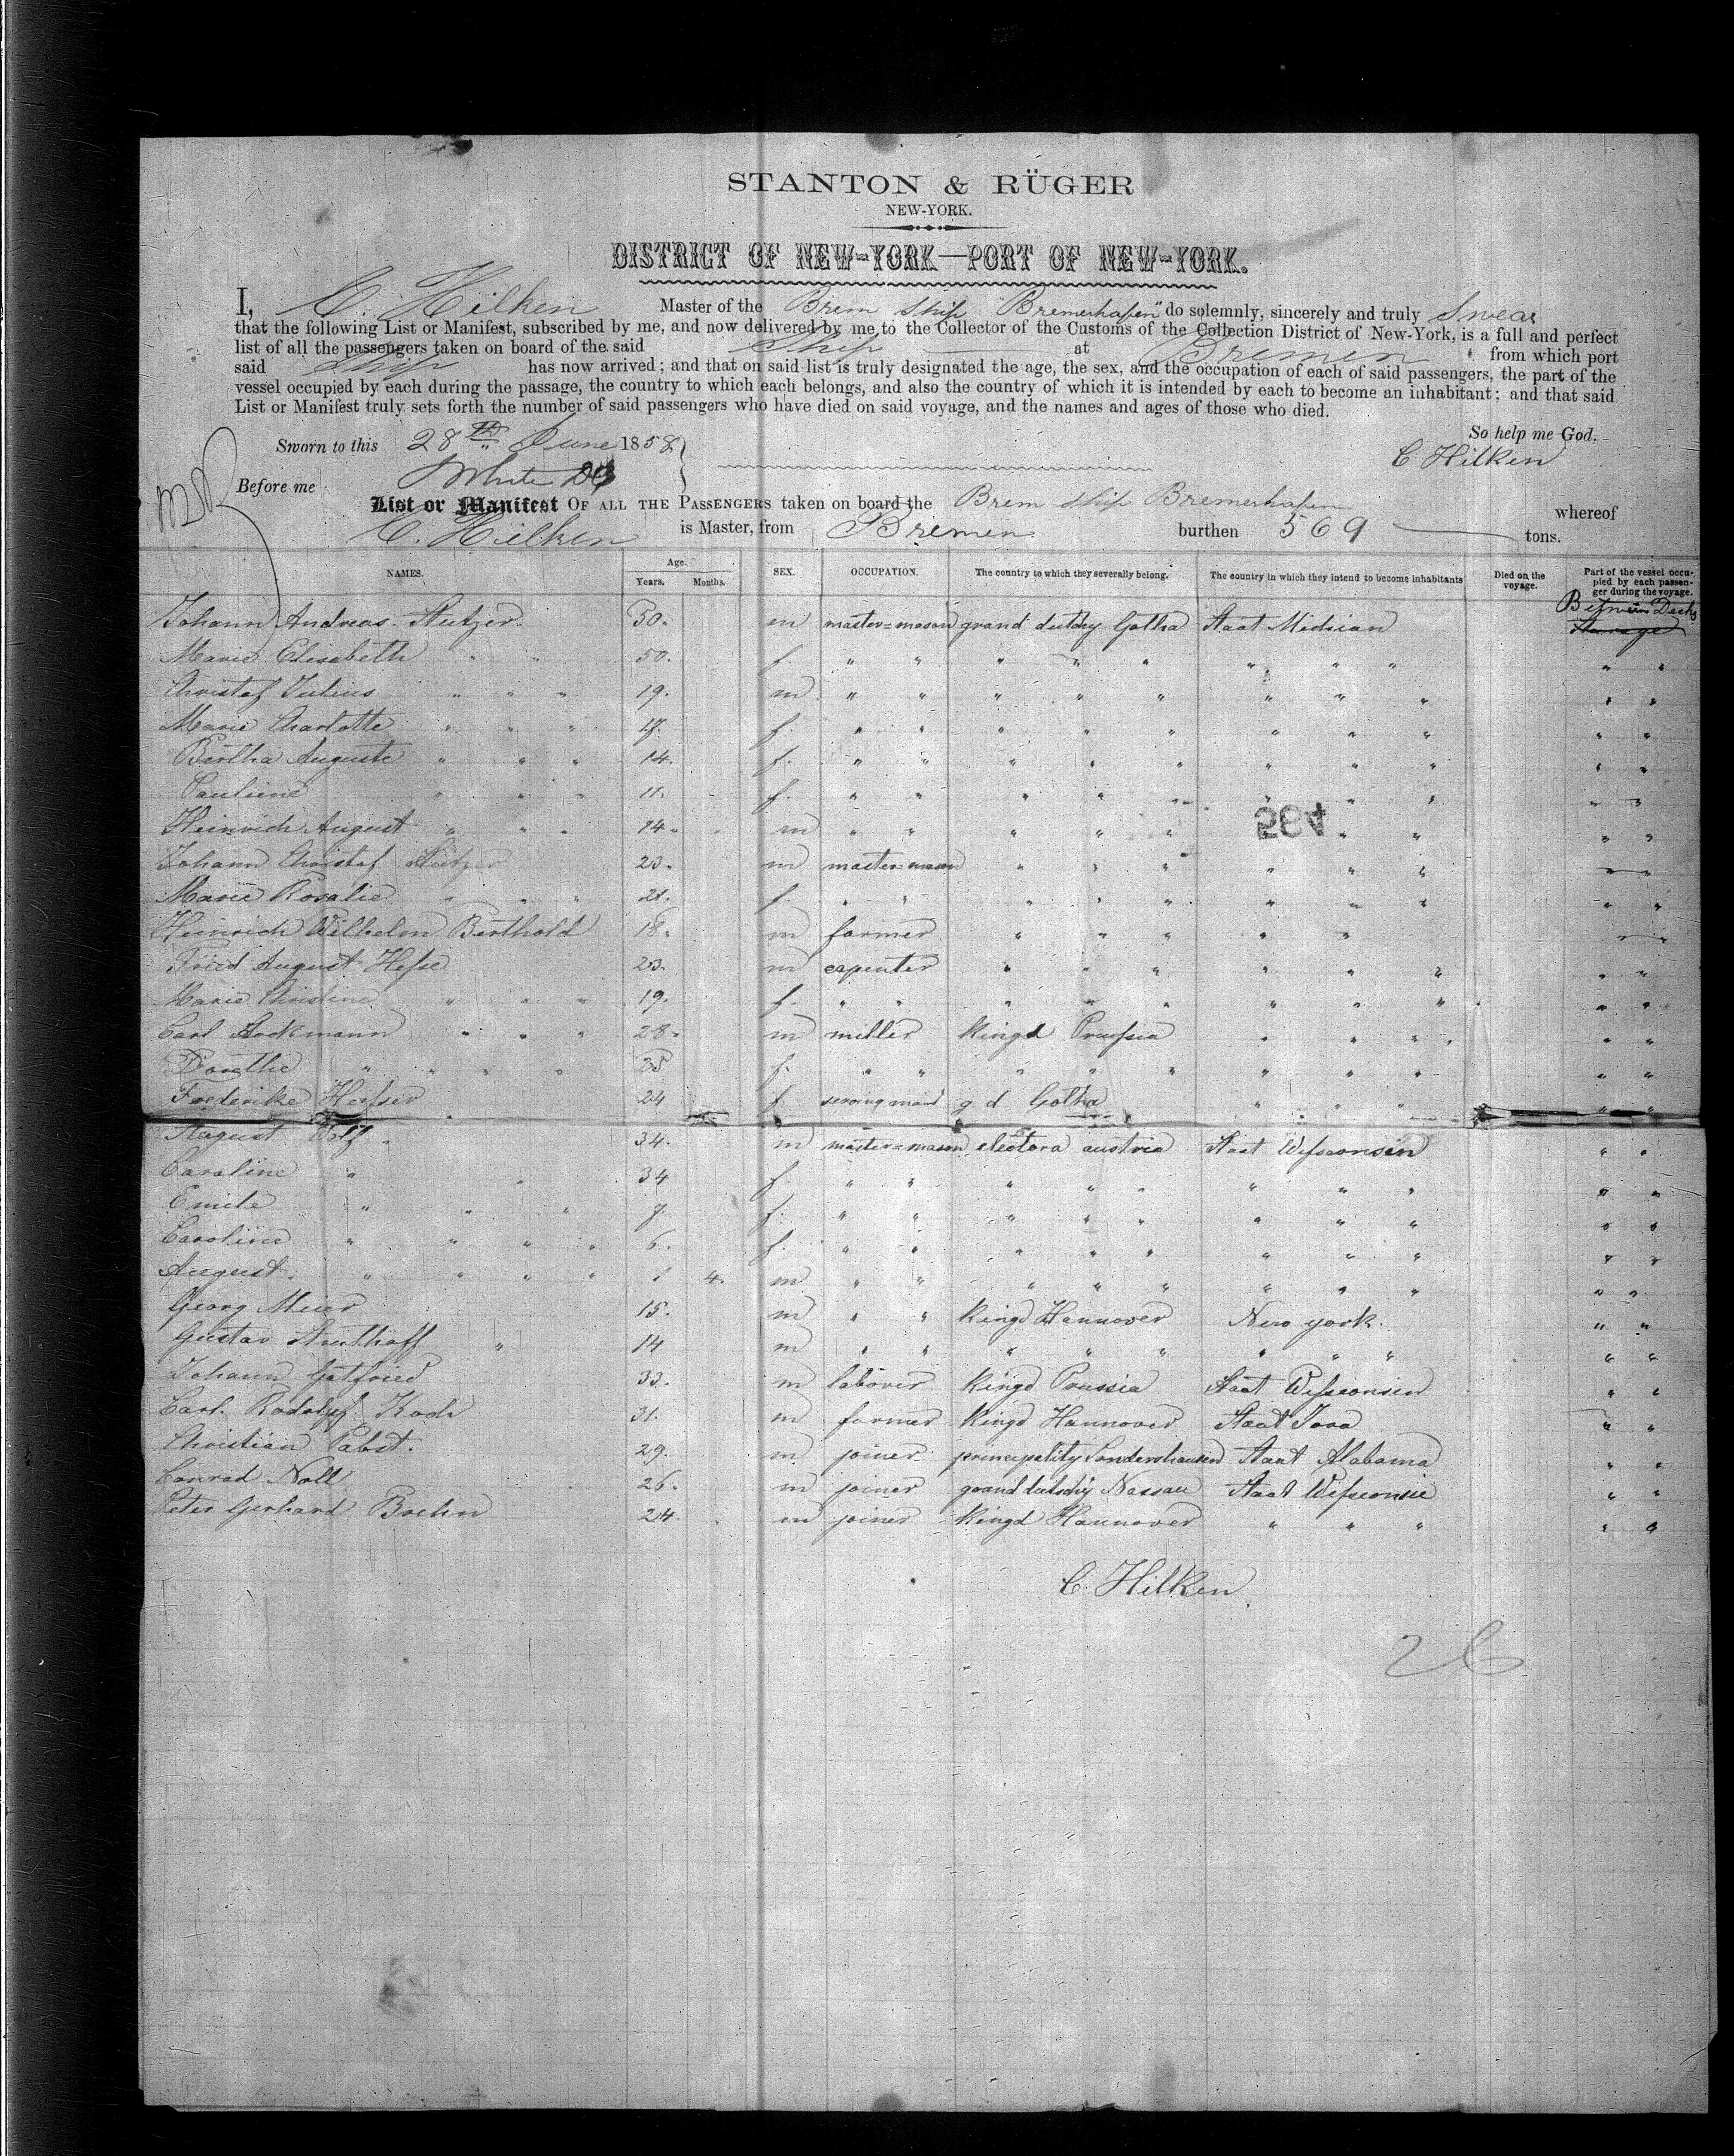 STANTON & RÜGER
NEW-YORK.
DISTRICT OF NEW-YORK—PORT OF NEW-YORK.
I, C. Hilken Master of the Brem ship Bremerhafen" do solemnly, sincerely and truly Swear
that the following List or Manifest, subscribed by me, and now delivered by me to the Collector of the Customs of the Collection District of New-York, is a full and perfect
list of all the passengers taken on board of the said Ship at Bremen from which port
said Ship has now arrived; and that on said list is truly designated the age, the sex, and the occupation of each of said passengers, the part of the
vessel occupied by each during the passage, the country to which each belongs, and also the country of which it is intended by each to become an inhabitant; and that said
List or Manifest truly sets forth the number of said passengers who have died on said voyage, and the names and ages of those who died.
Sworn to this 28th June 1858 So help me God,
C Hilken
Before me White
List or Manifest OF ALL THE PASSENGERS taken on board the Brem ship Bremerhafen whereof
C. Hilken is Master, from Bremen burthen 569 tons.
NAMES. Age. Years. Months. SEX. OCCUPATION. The country to which they severally belong. The country in which they intend to become inhabitants Died on the voyage. Part of the vessel occupied by each passenger during the voyage.
Johann Andreas 50. m master=mason grand dutchy Gotha Staat Michican Between Decks
Marie Elisabeth " " 50. f. " " " " " " " " " "
Christof Julius " " " 19. m " " " " " " " " " "
Marie Charlotte " " " 17. f. " " " " " " " " " "
Bertha Auguste " " " 14. f. " " " " " " " " " "
Pauline " " " 11. f. " " " " " " " " " "
Heinrich August " " " 14. m " " " " " 584 " " " "
Johann Christof 23. m master=mason " " " " " " " "
Marie Rosalie " " " 21. f. " " " " " " " " " "
Heinrich Wilhelm Berthold 18. m farmer " " " " " " "
Fried August Hesse 23. m capenter " " " " " " " "
Marie Christine " " " 19. f. " " " " " " " " " "
Carl " " " 28. m miller Kingd Preussia " " " " "
" " " " f. " " " " " " " " " "
Frederike 24 f. g d Gotha " " " " "
August Wolf 34. m master=mason electora austria Staat Wesseonsin " "
Caroline " " 34 f. " " " " " " " " " "
Emile " " " 7. f. " " " " " " " " " "
Caroline " " " " 6. f. " " " " " " " " " "
August. " " " " 1 4. m " " " " " " " " " "
Georg Meier 15. m " " Kingd Hannover New york. " "
Gustav " 14 m " " " " " " " " " "
Johann Gotfried 33. m laborer Kingd Prussia Staat Wesseonsin " "
Carl. Rodolph Koch 31. m farmer Kingd Hannover Staat Iova " "
Christian Pabst. 29. m joiner principality Sondershausen Staat Alabama " "
Conrad Noll 26. m joiner grand Nassau Staat Wesseonsin " "
Peter Gerhard Boehn 24. m joiner Kingd Hannover " " " " "
C. Hilken
26